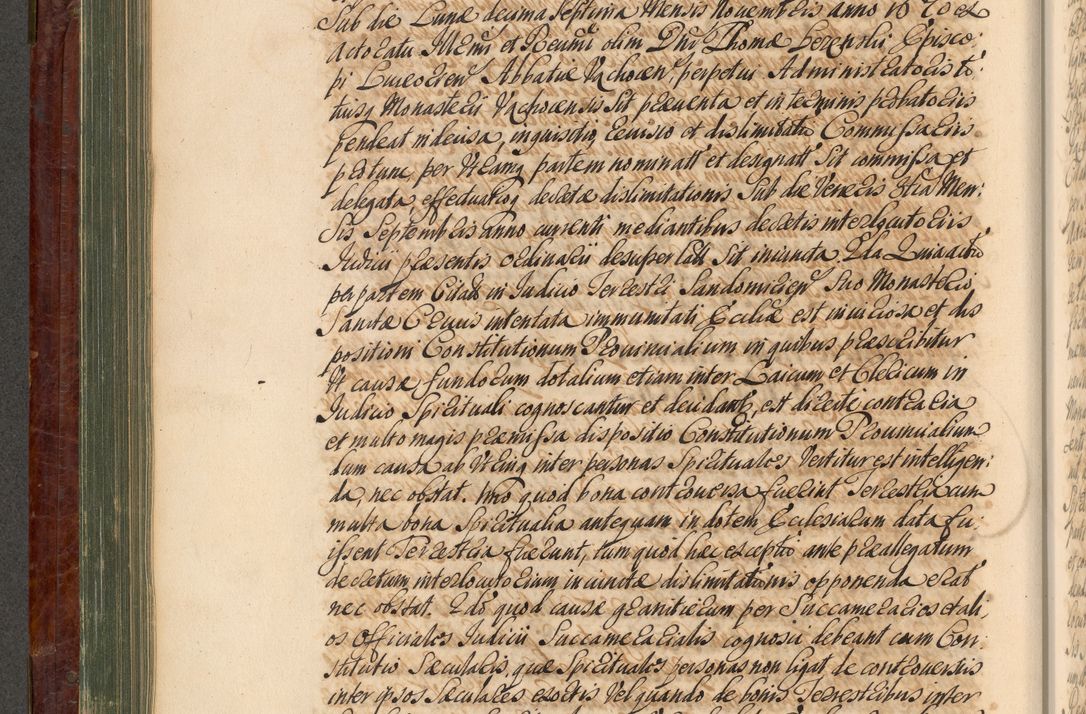 Sub die Lunæ decima Septima Mensis Novembris anno 1670 ex
actoratu Illmi et Rmi olim Dni Thomæ Lezenskii Episco:
pi Luceorien Abbatiæ Vąchocen perpetui Administratoris to:
tiusq Monasterii Vąchocensis sit præventa et in terminis probatoriis
pendeat indecisa, inquisitioq revisio et dislimitatio Commissariis
per tunc per Vtramq partem nominatis et designatis Sit commissa et
delegata effectuatioq decretæ dislimitationis Sub die Veneris 8tia Men:
Sis Septembris anno currenti mediantibus decretis interlocutoriis
Judicii præsentis ordinarii desuper latis Sit iniuncta. 2da Quia actio
per partem Citatam in Judicio Terrestri Sandomirien Suo Monasterio
Sanctæ Crucis intentata immunitati Ecclæ est iniuriosa et dis
positioni Constitutionum Provincialium in quibus præscribitur
Vt causæ fundorum dotalium etiam inter Laicum et Clericum in
Judicio Spirituali cognoscantur et decidantur, est directe contraria
et multo magis præmissa dispositio Constitutionum Provincialium
dum causa ab Vtrinq inter personas Spirituales Vertitur est intelligen:
da, nec obstat. Imo quod bona controversa fuerint Terrestria cum
multa bona Spiritualia antequam in dotem Ecclesiarum data fu:
issent Terrestria fuerunt, tum quod hæc exceptio ante præallegatum
decretum interlocutorium iniunctæ dislimitationis opponenda erat
nec obstat. 2do quod causæ granitierum per Succamerarios et ali
os Officiales Judicii Succamerarialis cognosci debeant cum Con:
stitutio Sæcularis, quæ Spirituales personas non ligat de controversiis
inter ipsos Sæculares exortis Vel quando de bonis Terrestribus inter